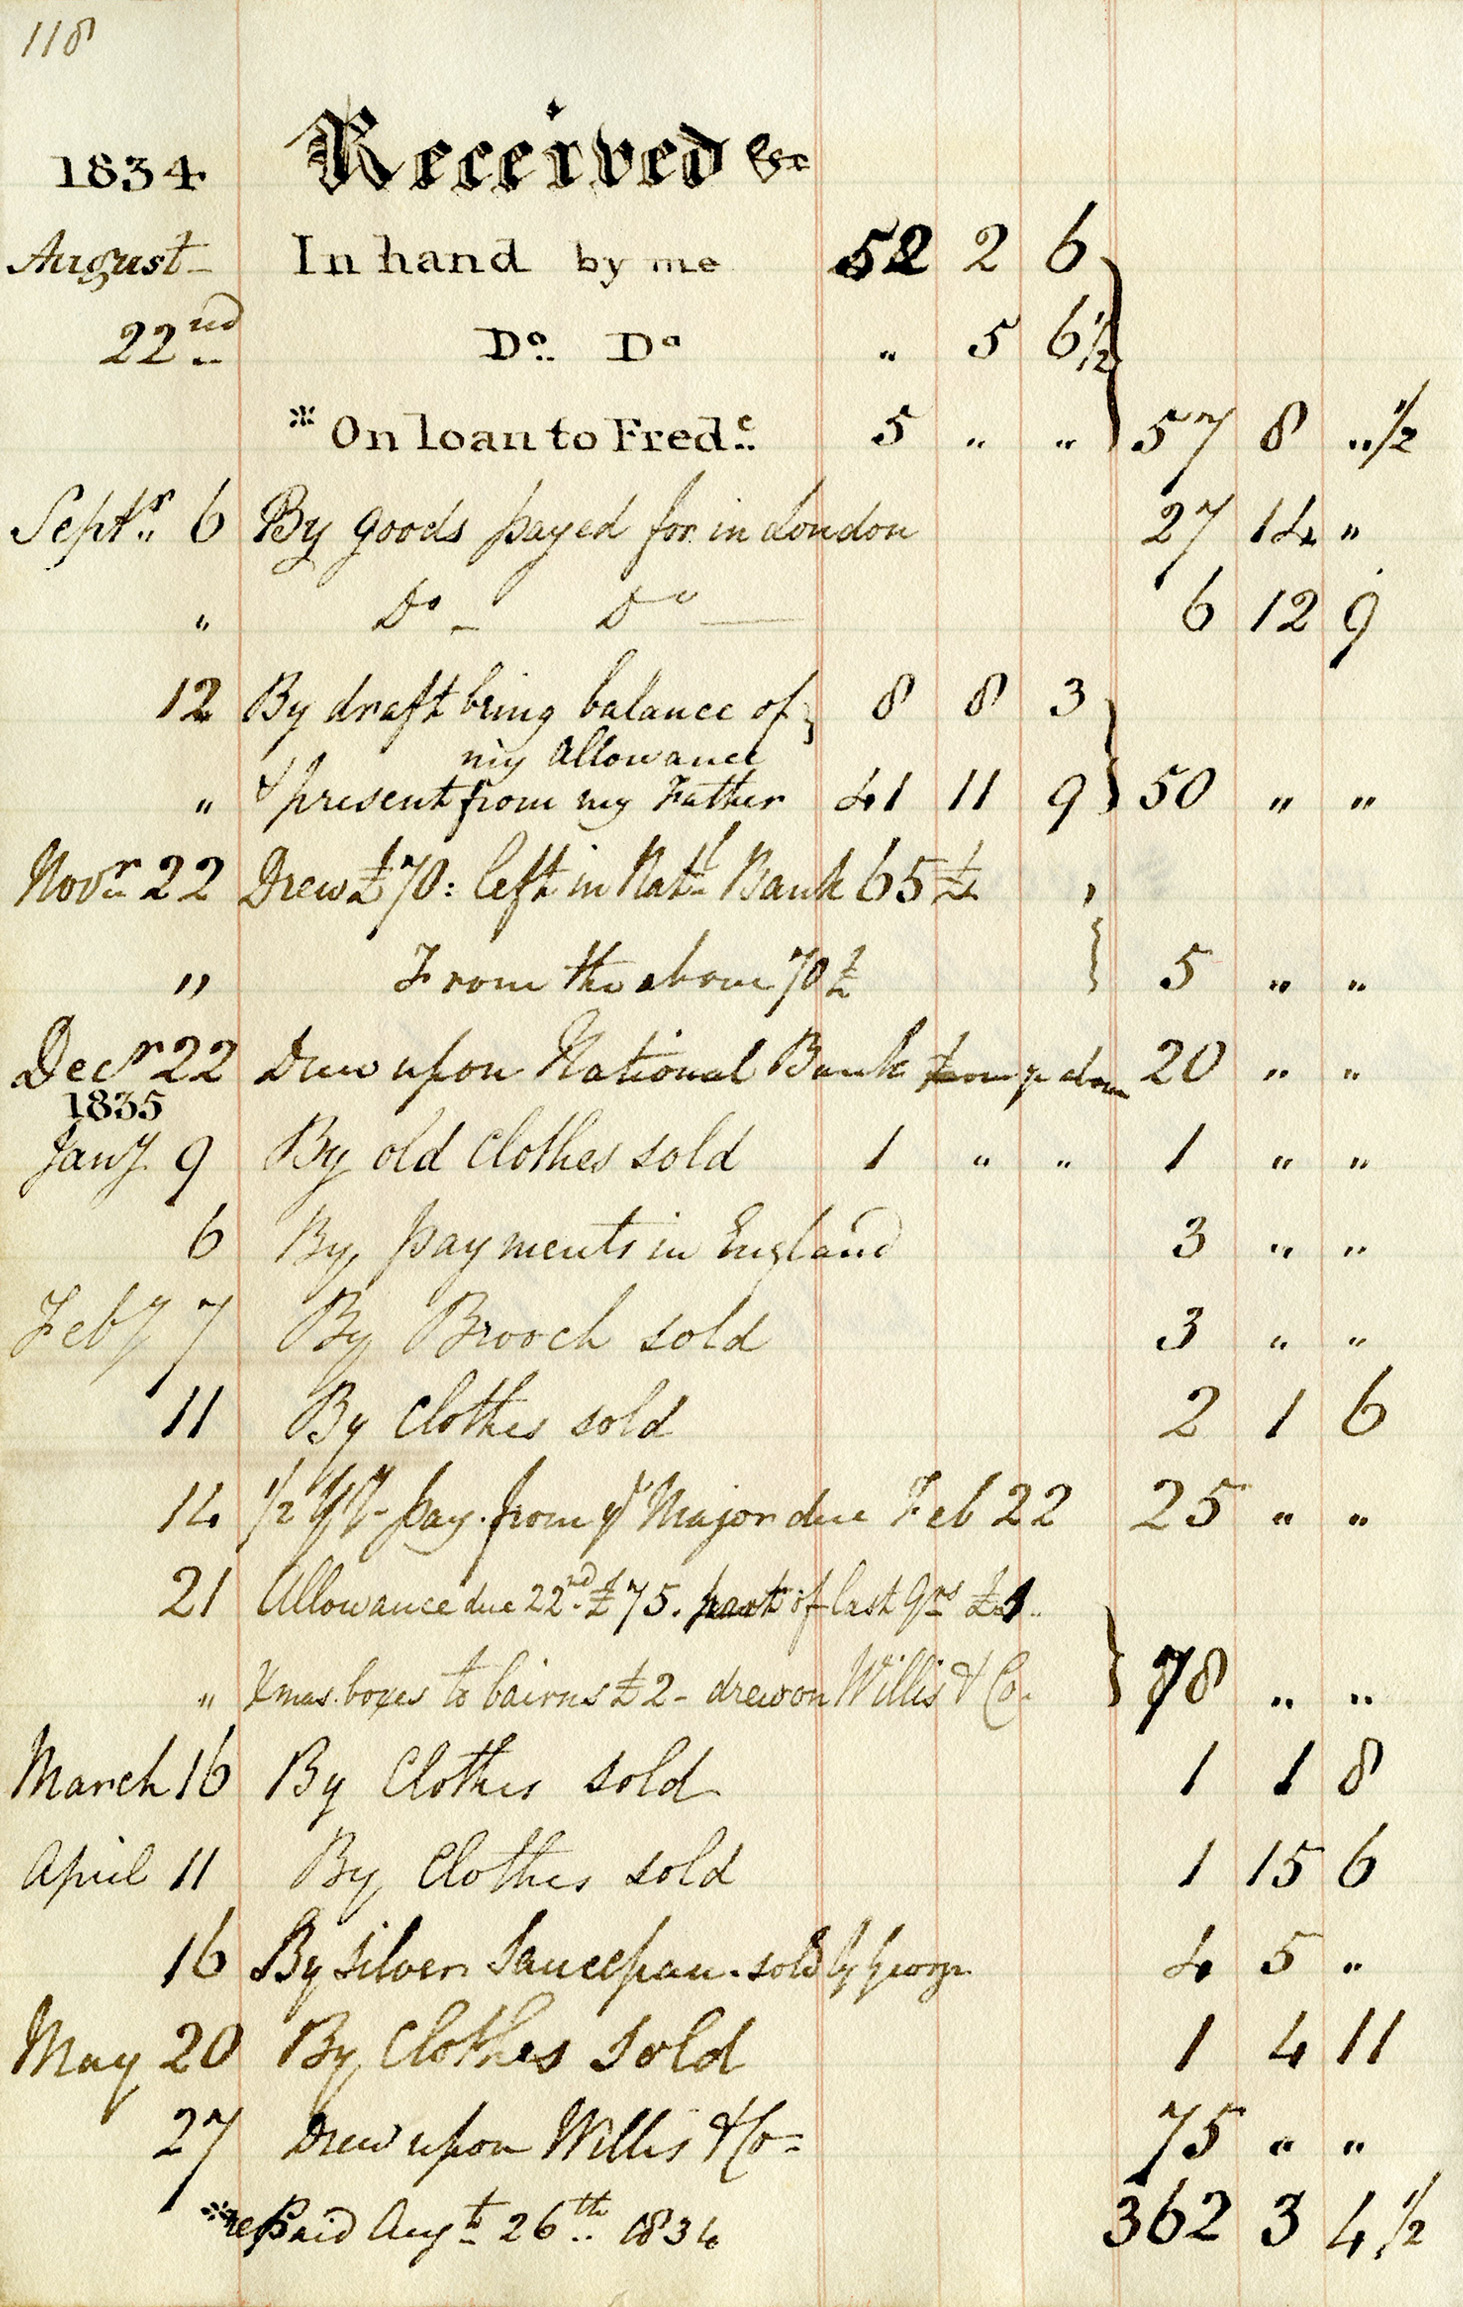 118
1834 Received &c
August In hand by me 52 2 6
22nd Do. Do " 5 6½
*On loan to Fredc. 5 " " 57 8 "½
Septr. 6 By goods payed for in London 27 14 "
" Do - Do 6 12 9
12 By draft being balance of 8 8 3
my allowance
" & present from my Father 41 11 9 50 " "
Novr 22 Drew £70: left in Natl Bank 65£
" From the above 70£ 5 " "
Decr 22 Drew upon National Bank 20 " "
1835
Jany 9 By old Clothes sold 1 " " 1 " "
6 By payments in England 3 " "
Feby 7 By Brooch sold 3 " "
11 By Clothes sold 2 1 6
14 ½ yy- pay. from ye Major due Feb 22 25 " "
21 Allowance due 22nd £75. part of last qrs £1..
" Xmas. boxes to bairns £2 - drew on Willis & Co. 78 " "
March 16 By Clothes sold 1 1 8
April 11 By Clothes sold 1 15 6
16 By Silver Saucepan. sold by George 4 5 "
May 20 By Clothes sold 1 4 11
27 Drew upon Willis & Co= 75 " "
*rePaid Augt 26th. 1834 362 3 4½